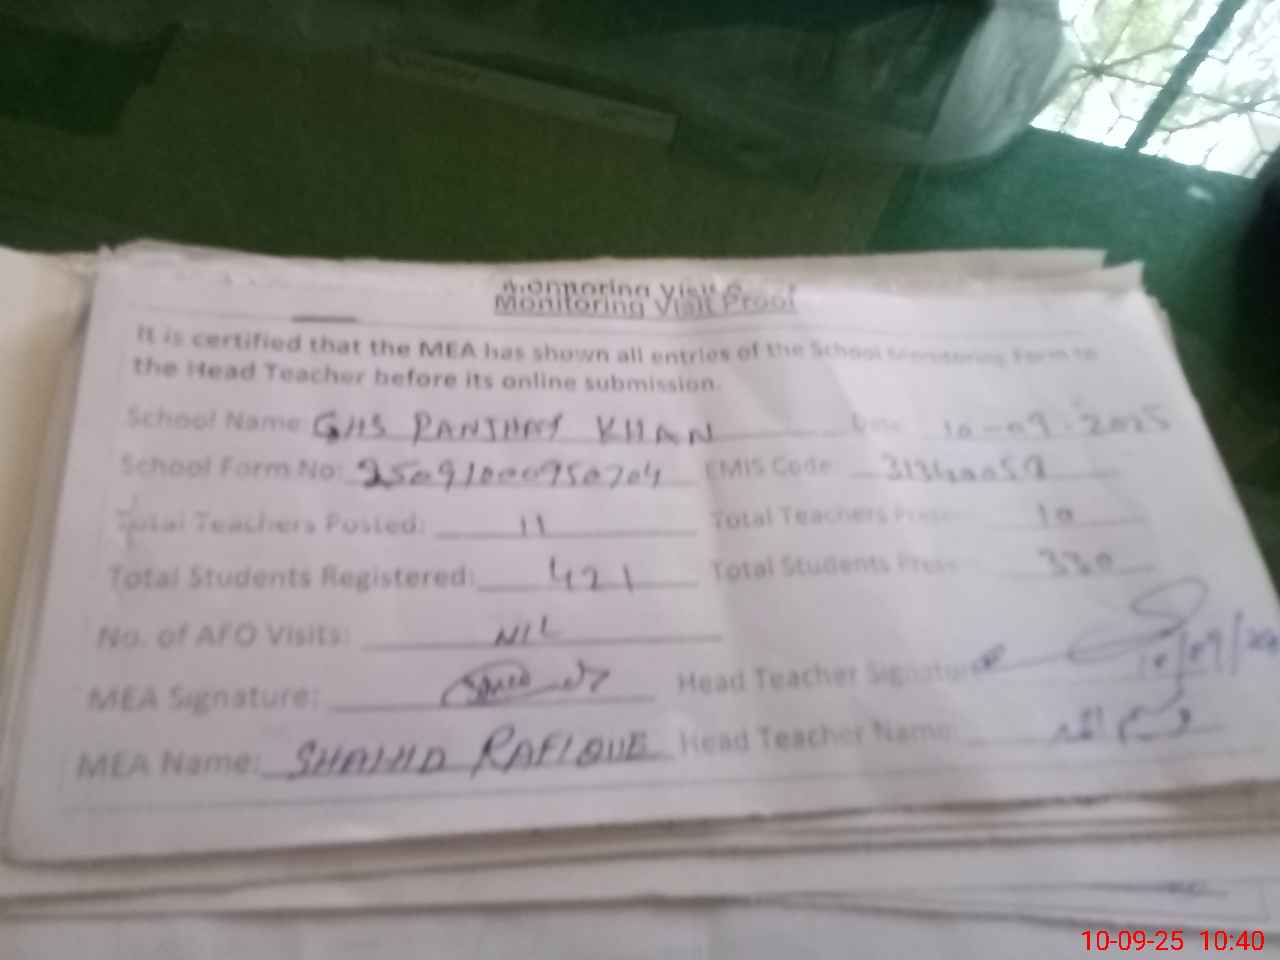 Monitoring Visit Proof
It is certified that the MEA has shown all entries of the School Monitoring Form to
the Head Teacher before its online submission.
School Name: GHS PANJHAY KHAN Date: 10-09-2025
School Form No: 25091000950704 EMIS Code:
Total Teachers Posted: 11 Total Teachers Present: 10
Total Students Registered: 421 Total Students Present: 330
No. of AFO Visits: NIL
MEA Signature: Head Teacher Signature: 10/09/
MEA Name: SHAHID RAFIQUE Head Teacher Name:
10-09-25 10:40